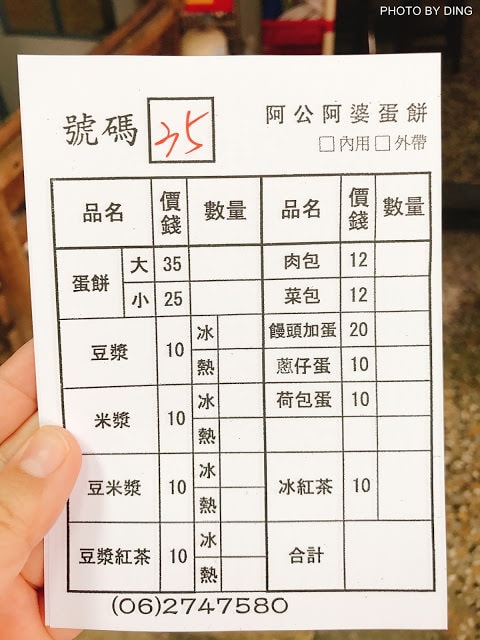 PHOTO BY DING
號碼 35 阿公阿婆蛋餅
□內用□外帶
品名 價錢 數量 品名 價錢 數量
蛋餅 大 35 肉包 12
小 25 菜包 12
豆漿 10 冰 饅頭加蛋 20
熱 蔥仔蛋 10
米漿 10 冰 荷包蛋 10
熱
豆米漿 10 冰 冰紅茶 10
熱
豆漿紅茶 10 冰 合計
熱
(06)2747580